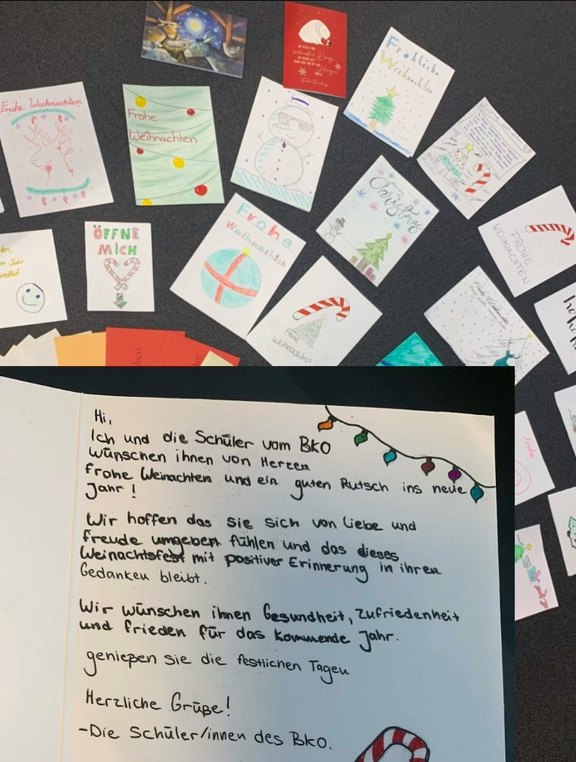 Fröhliche
Weihnachten
Frohe Weihnachten
Frohe
Weihnachten
Christmas
ÖFFNE
MICH
Frohe
Weihnachten
FROHE
WEIHNACHTEN
Frohe
Weihnachten
Frohe
Hi,
Ich und die Schüler vom BKO
wünschen ihnen von Herzen
frohe Weinachten und ein guten Rutsch ins neue
Jahr!
Wir hoffen das sie sich von Liebe und
Freude umgeben fühlen und das dieses
Weinachtsfest mit positiver Erinnerung in ihren
Gedanken bleibt.
Wir wünschen ihnen Gesundheit, Zufriedenheit
und frieden für das kommende Jahr.
genießen sie die festlichen Tagen
Herzliche Grüße!
-Die Schüler/innen des BKO.